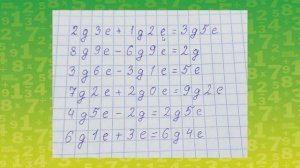 2 д 3 е + 1 д 2 е = 3 д 5 е
8 д 9 е - 6 д 9 е = 2 д
3 д 6 е - 3 д 1 е = 5 е
7 д 2 е + 2 д 0 е = 9 д 2 е
4 д 5 е - 2 д = 2 д 5 е
6 д 1 е + 3 е = 6 д 4 е